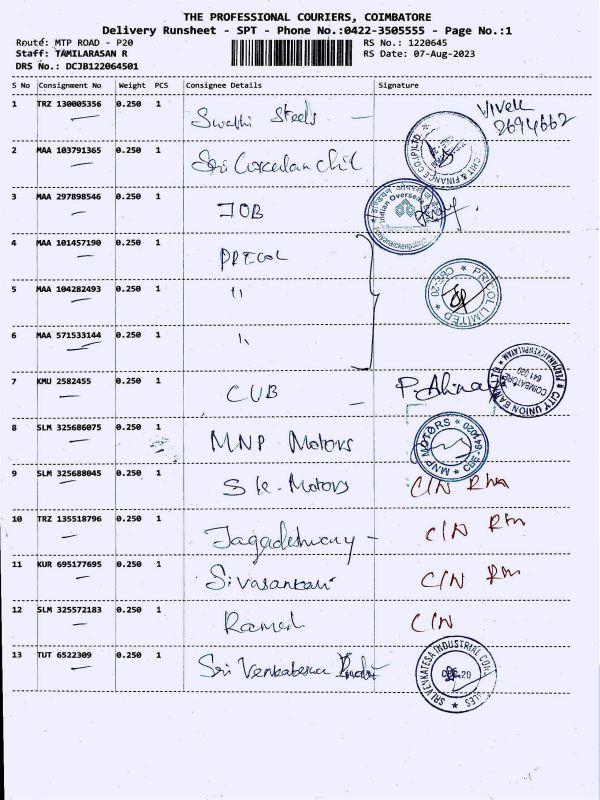 THE PROFESSIONAL COURIERS, COIMBATORE
Delivery Runsheet - SPT - Phone No.:0422-3505555 - Page No.:1
Route: MTP ROAD - P20 RS No.: 1220645
Staff: TAMILARASAN R RS Date: 07-Aug-2023
DRS No.: DCJB122064501
S No Consignment No Weight PCS Consignee Details Signature
1 TRZ 130005356 0.250 1 Swathi Steels Vivek
2694662
2 MAA 103791365 0.250 1 Sri Circulan chit CHIT & FINANCE CO.(P)LTD.
3 MAA 297898546 0.250 1 IOB Indian Overseas
4 MAA 101457190 0.250 1 PRICOL
5 MAA 104282493 0.250 1 " PRICOL LIMITED ★ CBE-20 ★
6 MAA 571533144 0.250 1 "
7 KMU 2582455 0.250 1 CUB CITY UNION BANK LTD ★ PERIYANAICKENPALAYAM ★ COIMBATORE 641 020
8 SLM 325686075 0.250 1 MNP Motors MNP MOTORS ★ CBE-641020 ★
9 SLM 325688045 0.250 1 S K. Motors C/N Rtn
10 TRZ 135518796 0.250 1 Jagadeshwary C/N Rtn
11 KUR 695177695 0.250 1 Sivasankari C/N Rtn
12 SLM 325572183 0.250 1 Ramesh C/N
13 TUT 6522309 0.250 1 Sri Venkatesa SRI VENKATESA INDUSTRIAL